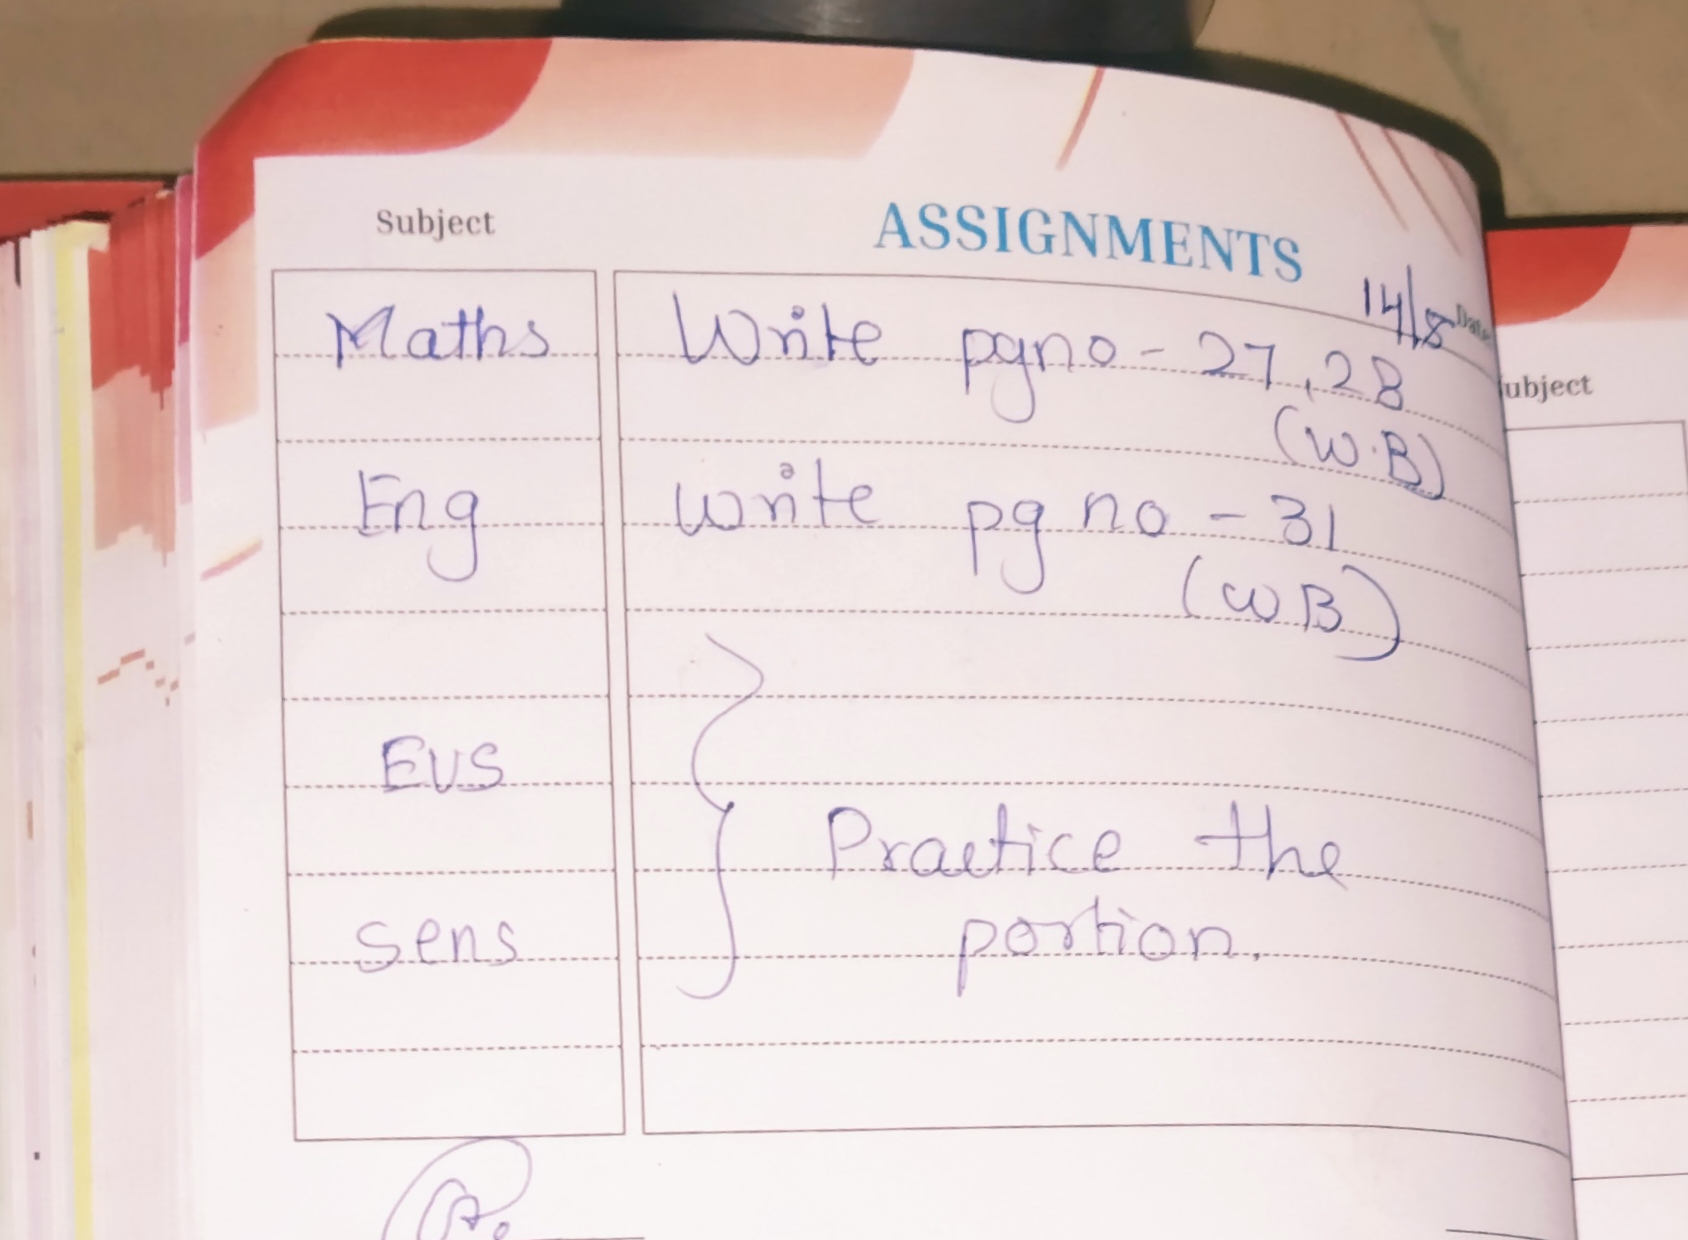 Subject ASSIGNMENTS
14/8 Date
Maths Write pg no - 27, 28
(W.B)
Eng Write pg no - 31
(WB)
EVS
Practice the
sens portion.
ubject